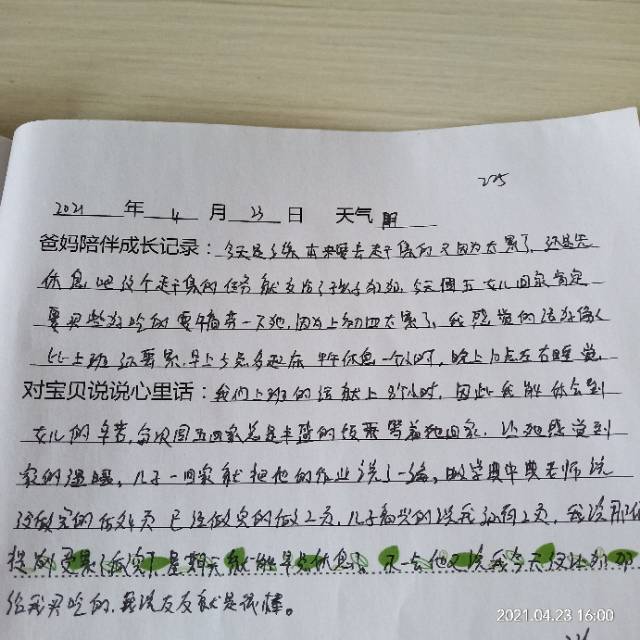 225
2021 年 4 月 23 日 天气 阴
爸妈陪伴成长记录:今天是 本来要去赶集的 又因为太累了,还是先
休息吧这个赶集的任务就交给了孩子奶奶,今天周五女儿回家肯定
要买些好吃的要犒劳一下她,因为上初四太累了,我感觉的活好像
比上班还要累早上5点多起床 中午休息一个小时,晚上10点左右睡觉,
对宝贝说说心里话:我们上班的话就上8个小时,因此我能体会到
女儿的辛苦,每次周五回家总是丰盛的饭菜等着她回家,让她感觉到
家的温暖,儿子一回家就把他的作业说了一遍,
没做完的做 页 已经做完的做2页,儿子高兴的说我 2页,我说那你
提前 完 了 星期天就能早点休息了,不一会他又说我今天
给我买吃的,我说友友就是很棒。
2021.04.23 16:00